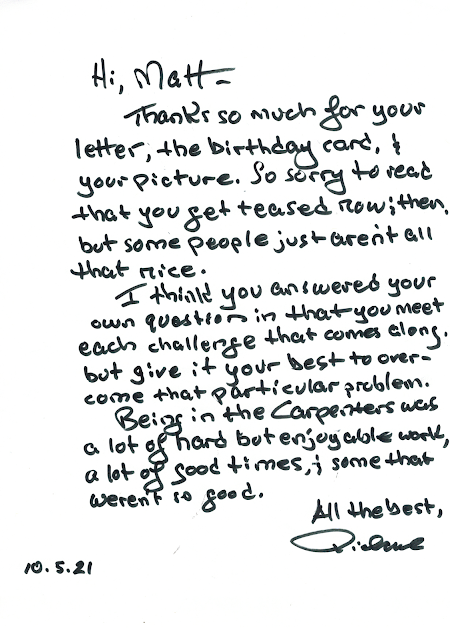 Hi, Matt –
Thanks so much for your
letter, the birthday card, &
your picture. So sorry to read
that you get teased now & then,
but some people just aren't all
that nice.
I think you answered your
own question in that you meet
each challenge that comes along,
but give it your best to over-
come that particular problem.
Being in the Carpenters was
a lot of hard but enjoyable work,
a lot of good times, & some that
weren't so good.
All the best,
Richard
10.5.21